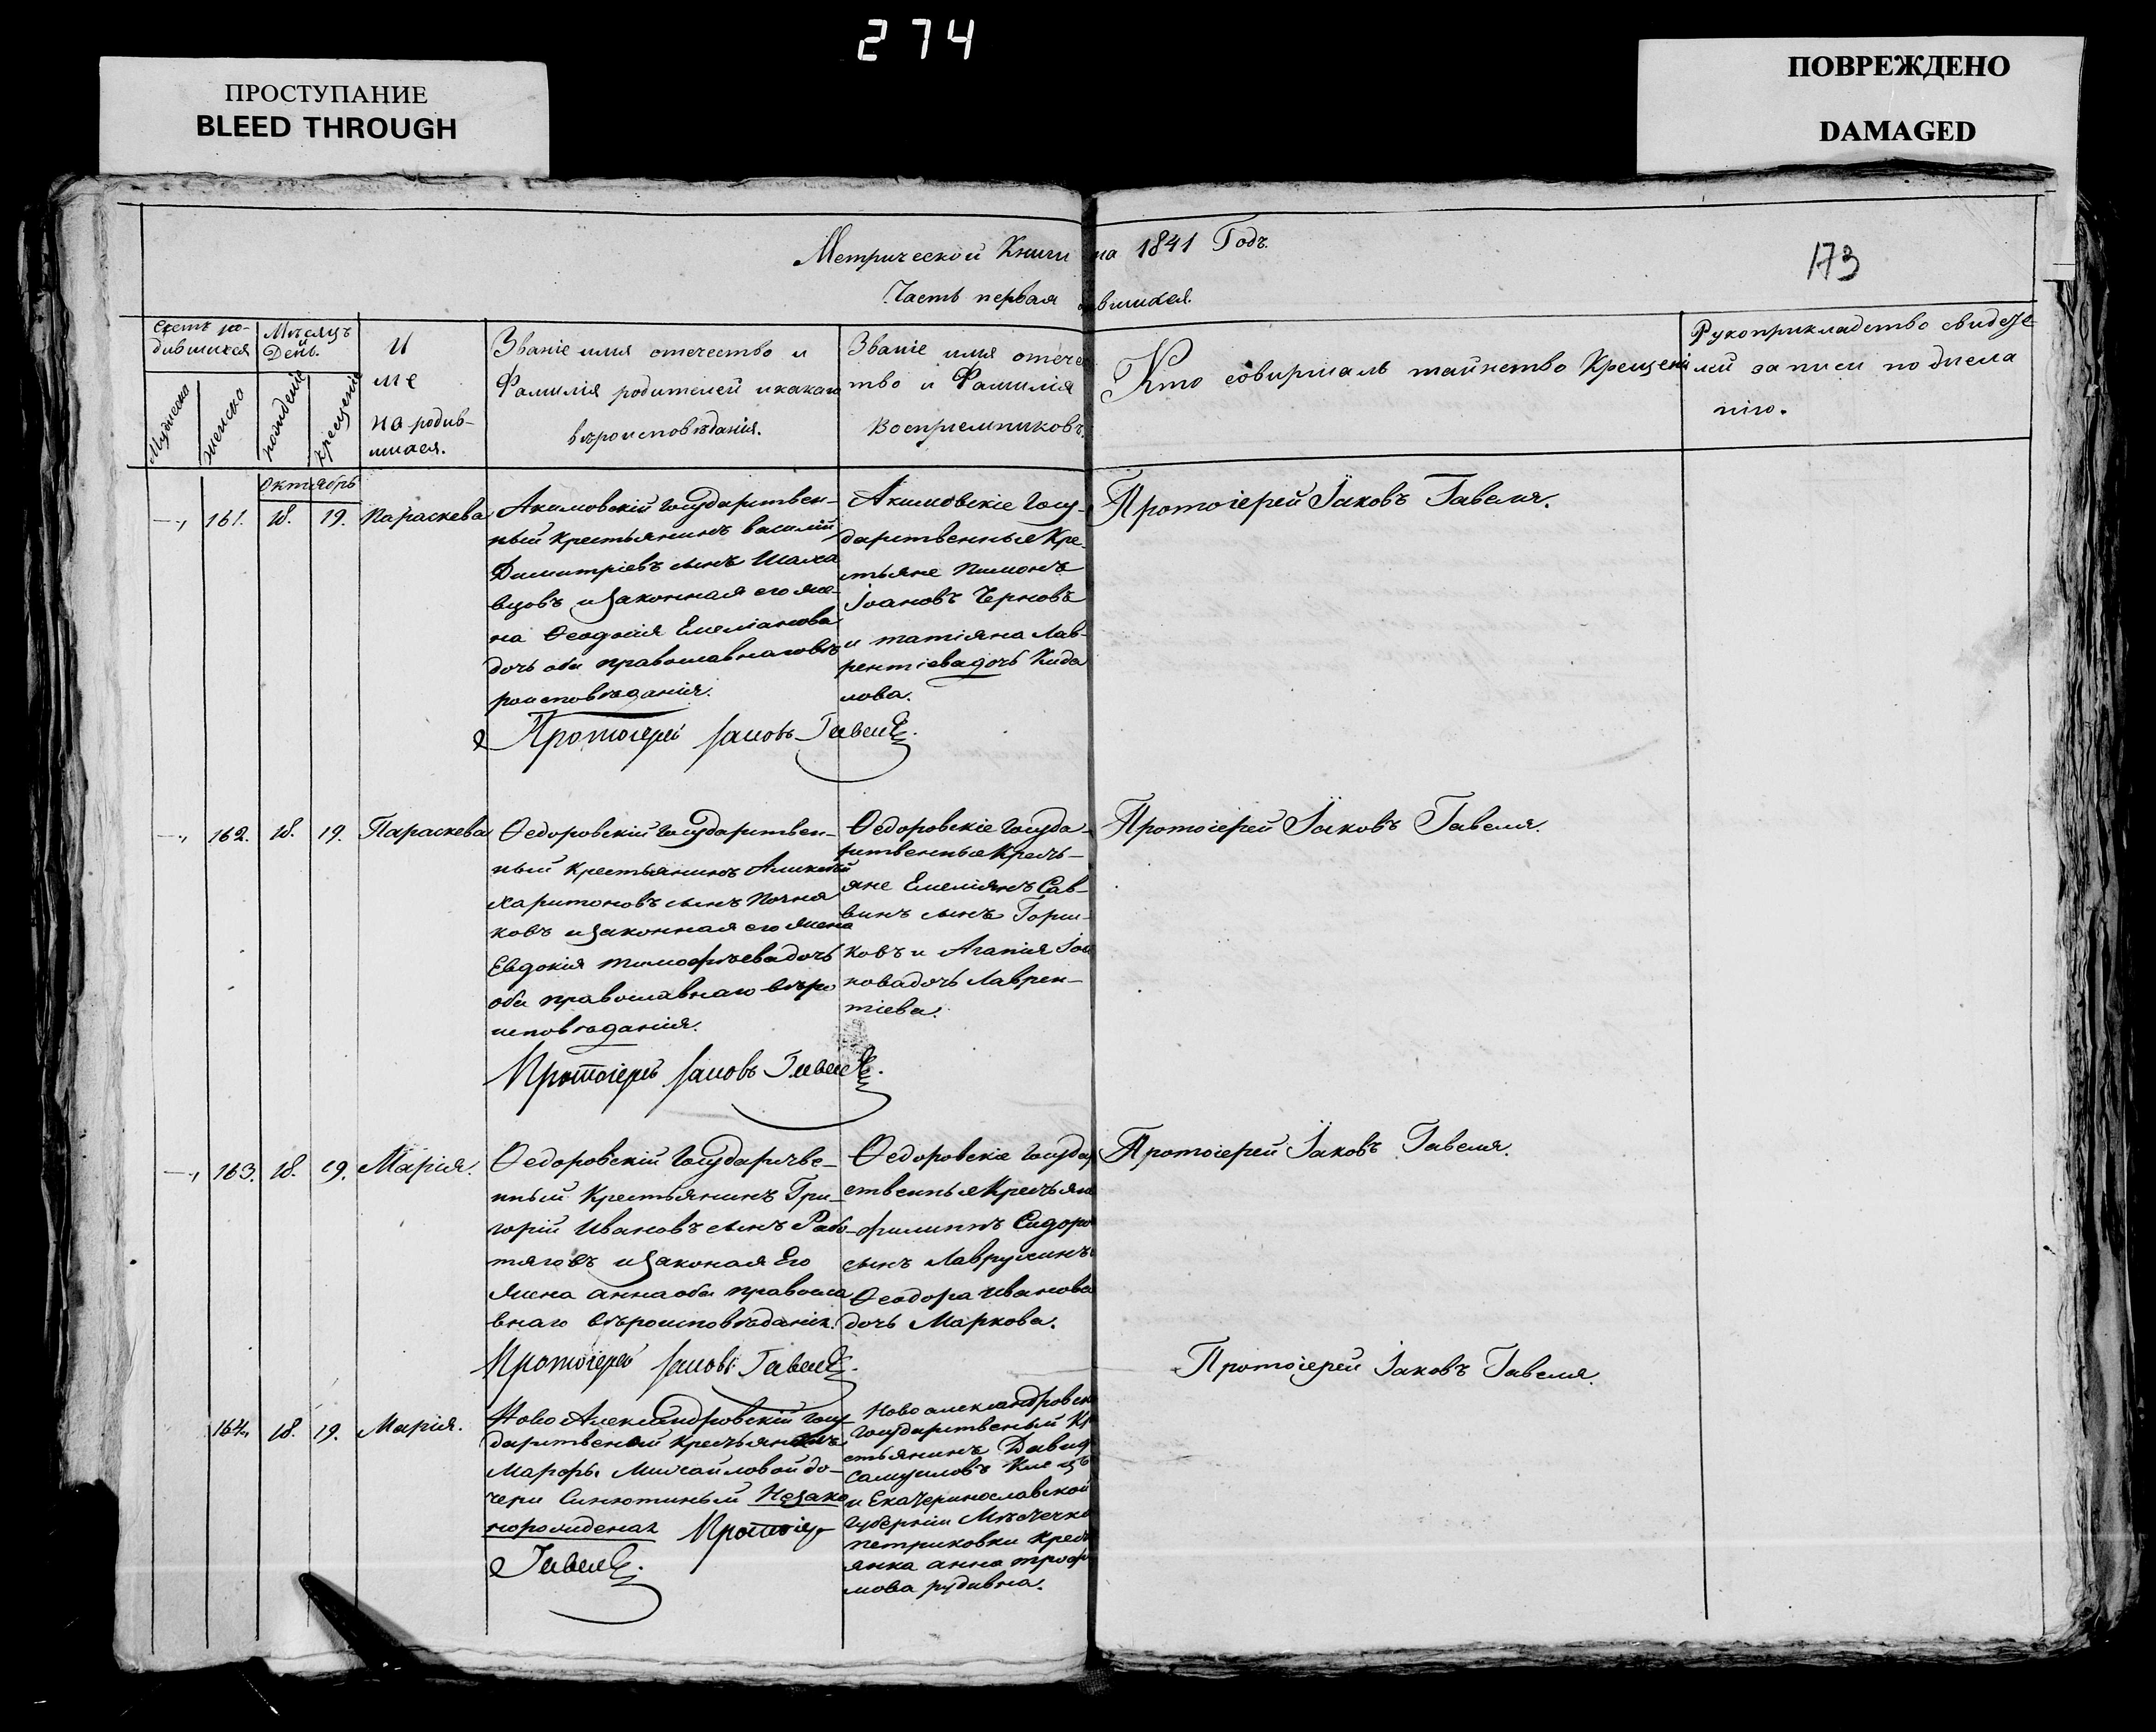 274
ПРОСТУПАНИЕ
BLEED THROUGH
ПОВРЕЖДЕНО
DAMAGED
Метрической Книги на 1841 Годъ.
173
Часть первая
Счетъ ро-
дившихся
Мужеска
женска
Мѣсяцъ
и
День.
рожденіе
крещеніе
И
ме
на родив-
шихся.
Званіе имя отечество и
Фамилія родителей и какаго
вѣроисповѣданія.
Званіе имя отечес
тво и Фамилія
Воспріемниковъ.
Кто совиршалъ таинство Крещені
Рукоприкладство свидете
лей записи по
Октябрь
161. 18. 19. Параскева
Акимовскій государствен-
ный Крестьянинъ василій
Димитріевъ сынъ Шаха
вцовъ и законная его же-
на Ѳеодосія Емеліанова
дочь оба православнаго вѣ
роисповѣданія.
Протоіерей Іаковъ Гавеля.
Акимовскіе госу-
дарственные Кре-
стьяне Пимонъ
Іоановъ Черновъ
и татіяна Лав-
рентіева дочь Кида
лова.
Протоіерей Іаковъ Гавеля.
162. 18. 19. Параскева
Ѳедоровскій государствен-
ный Крестьянинъ Аликсѣй
харитоновъ сынъ Почня
ковъ и законная его жена
Евдокія тимофѣева дочь
оба православнаго вѣро
исповѣданія.
Протоіерей Іаковъ Гавеля.
Ѳедоровскіе госуда-
рственные Кресть-
яне Емеліянъ Сав-
винъ сынъ Горш-
ковъ и Агапія Іоа
нова дочь Лаврен-
тіева.
Протоіерей Іаковъ Гавеля.
163. 18. 19. Марія.
Ѳедоровскій государстве-
нный Крестьянинъ Гри-
горій Ивановъ сынъ Рабо-
тяговъ и законая Его
жена анна оба правосла
внаго вѣроисповѣданія.
Протоіерей Іаковъ Гавеля.
Ѳедоровскіе государ
ственные Крестьяне
филиппъ Сидоро
сынъ Лаврухинъ
Ѳеодора Иванова
дочь Маркова.
Протоіерей Іаковъ Гавеля.
164. 18. 19. Марія.
Ново Александровскій госу-
дарственой
Марфы Михайловой до-
чери Синютиный Незако
норожденая Протоіер
Гавеля.
Ново александровск
государственый Кр
стьянинъ Давид
Самуиловъ
и Екатеринославской
губерніи Мѣстечко
петриковки Крест
янка анна трофи
мова рудивна.
Протоіерей Іаковъ Гавеля.